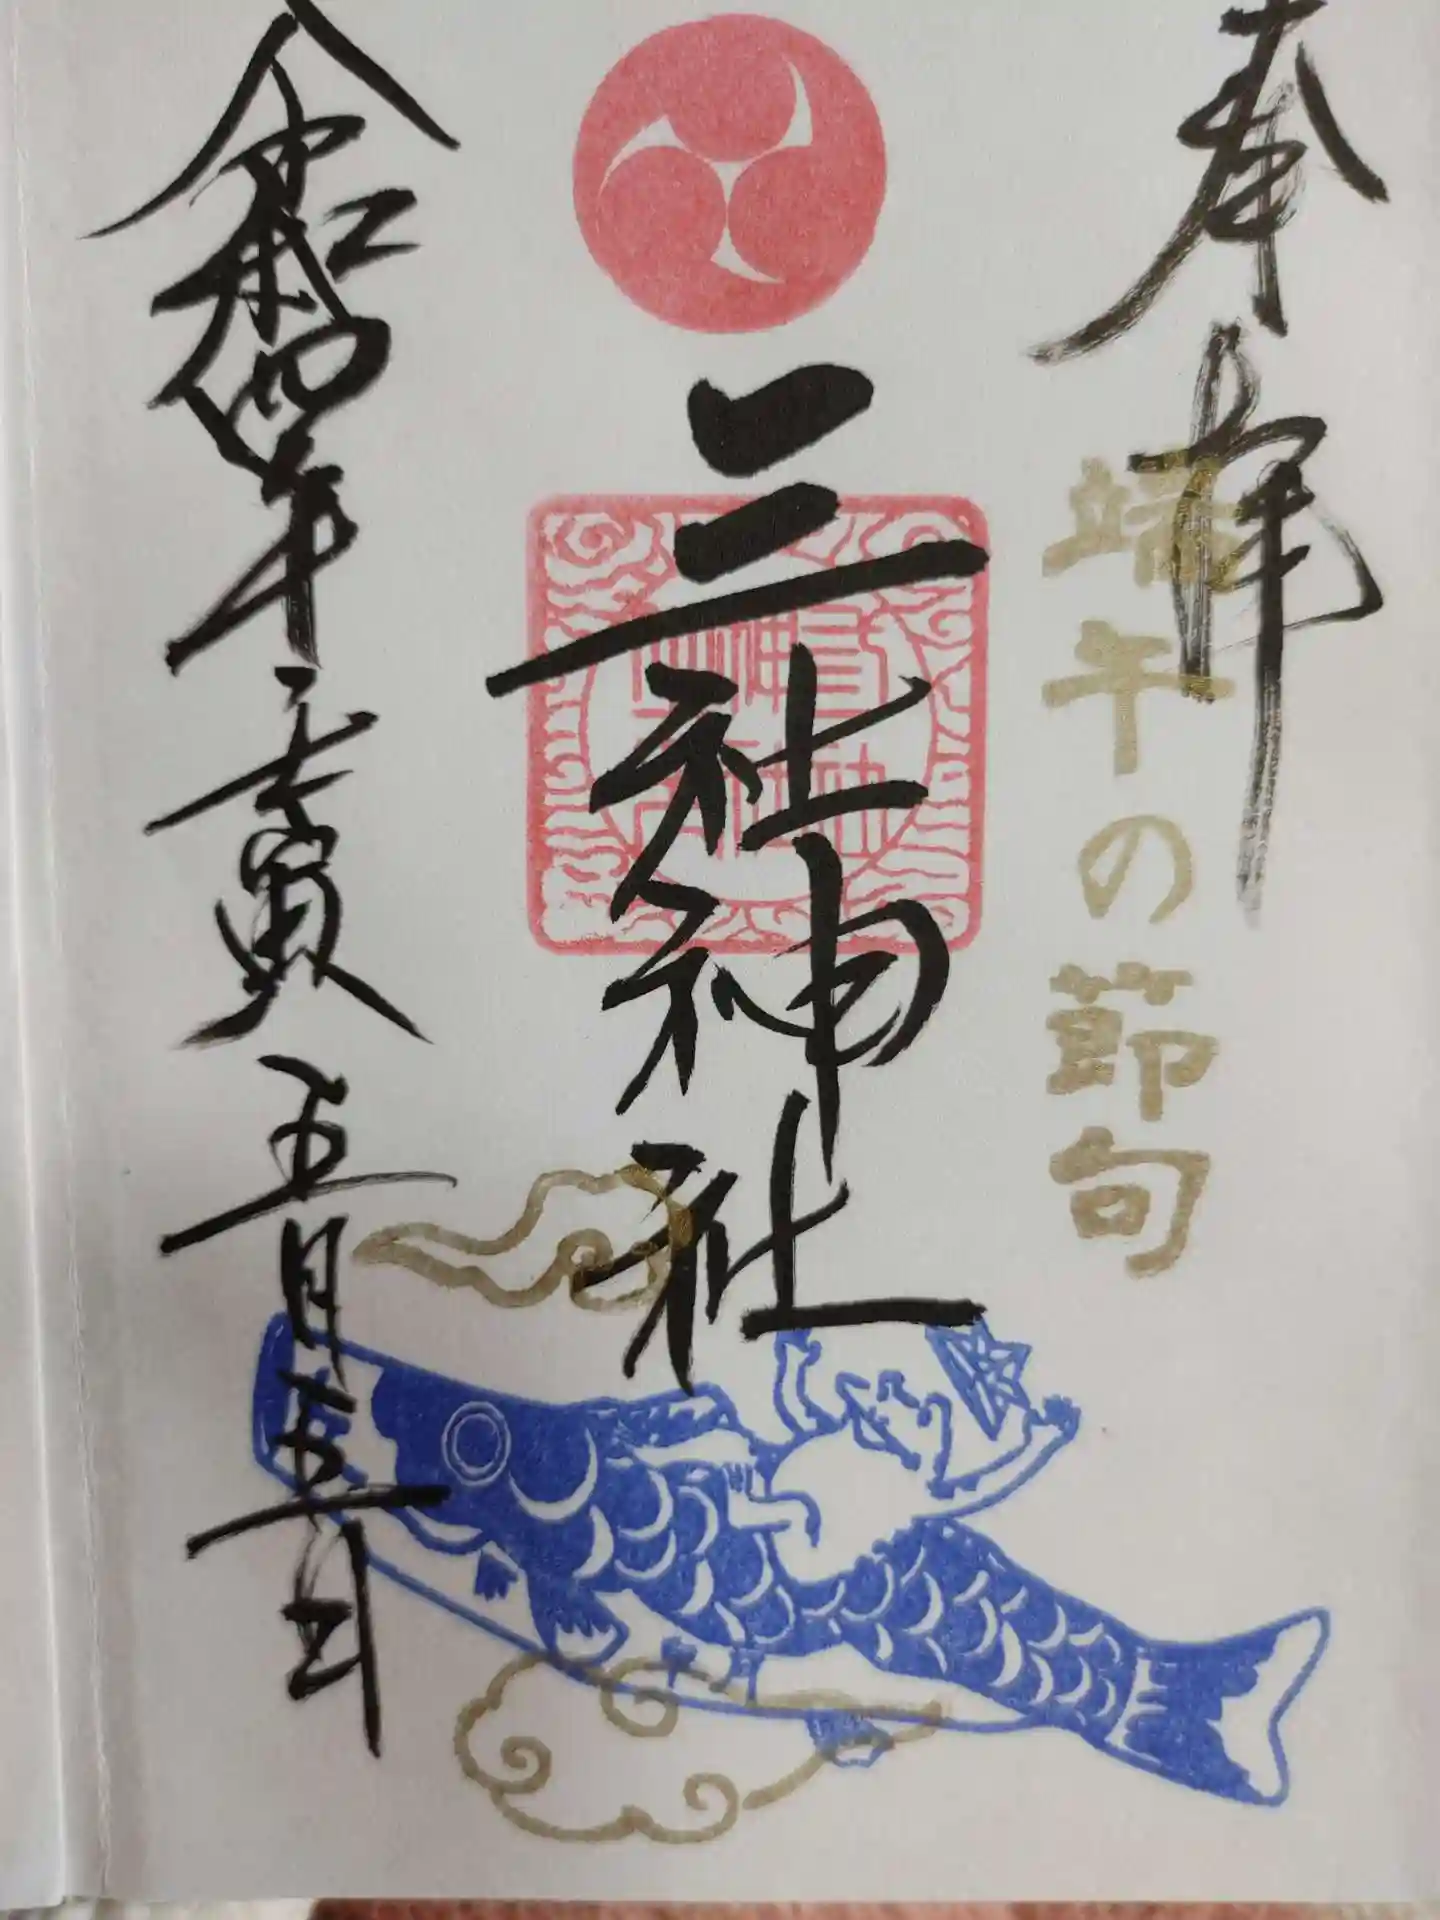 奉拝
端午の節句
三社神社
令和四年壬寅五月五日